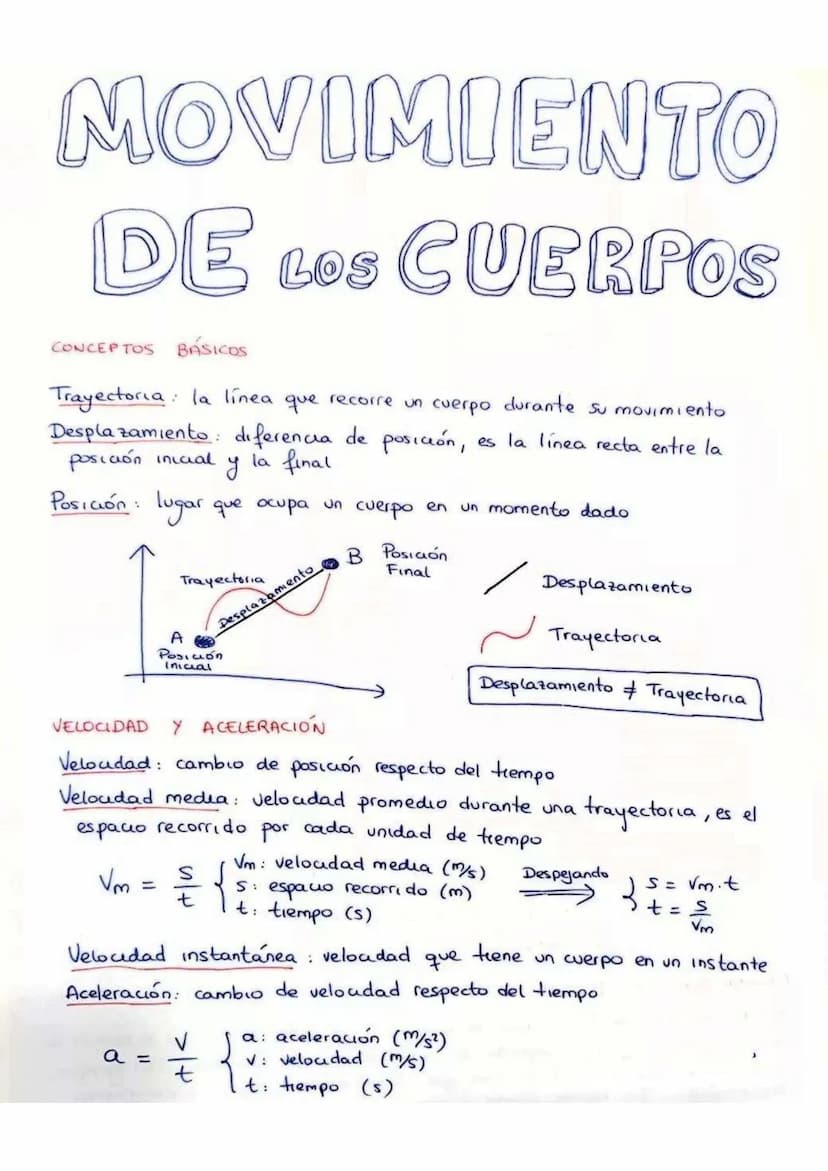 MOVIMIENTO
DE LOS CUERPOS
CONCEPTOS BÁSICOS
Trayectoria: la línea que recorre un cuerpo durante su movimiento
Desplazamiento: diferencia de posición, es la línea recta entre la
posición inicial y la final
Posición: lugar que ocupa un cuerpo en un momento dado
Trayectoria
Desplazamiento
B Posición
Final
A
Posición
Inicial
Desplazamiento
Trayectoria
Desplazamiento ≠ Trayectoria
VELOCIDAD Y ACELERACIÓN
Velocidad: cambio de posición respecto del tiempo
Velocidad media: velocidad promedio durante una trayectoria, es el
espacio recorrido por cada unidad de tiempo
Vm = s/t { Vm: velocidad media (m/s)
s: espacio recorrido (m)
t: tiempo (s)
Despejando
} s = Vm·t
t = s/Vm
Velocidad instantánea: velocidad que tiene un cuerpo en un instante
Aceleración: cambio de velocidad respecto del tiempo
a = V/t { a: aceleración (m/s²)
v: velocidad (m/s)
t: tiempo (s)